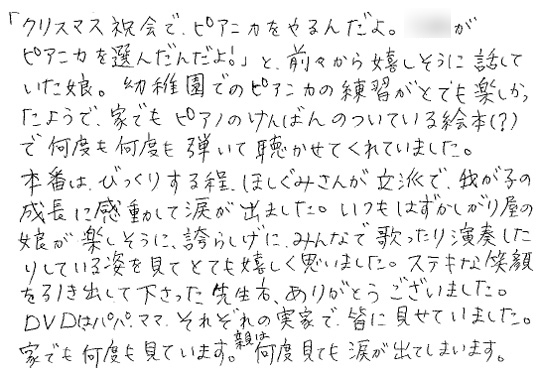 「クリスマス祝会で、ピアニカをやるんだよ。 が
ピアニカを選んだんだよ!」と、前々から嬉しそうに話して
いた娘。幼稚園でのピアニカの練習がとても楽しかっ
たようで、家でもピアノのけんばんのついている絵本(?)
で何度も何度も弾いて聴かせてくれていました。
本番は、びっくりする程、ほしぐみさんが立派で、我が子の
成長に感動して涙が出ました。いつもはずかしがり屋の
娘が楽しそうに、誇らしげに、みんなで歌ったり演奏した
りしている姿を見てとても嬉しく思いました。ステキな笑顔
を引き出して下さった先生方、ありがとうございました。
DVDはパパ、ママ、それぞれの実家で、皆に見せていました。
家でも何度も見ています。親は何度見ても涙が出てしまいます。